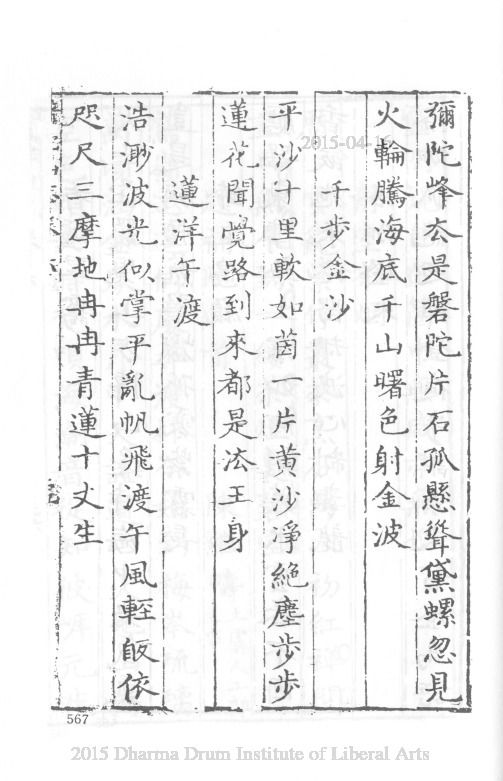 彌陀峰厺是磐陀片石孤懸聳黛螺忽見
火輪騰海底千山曙色射金波
千步金沙
平沙十里軟如茵一片黃沙淨絶塵步步
蓮花聞覺路到來都是法王身
蓮洋午渡
浩渺波光似掌平亂帆飛渡午風輕皈依
咫尺三摩地冉冉青蓮十丈生
567
2015-04-16
2015 Dharma Drum Institute of Liberal Arts